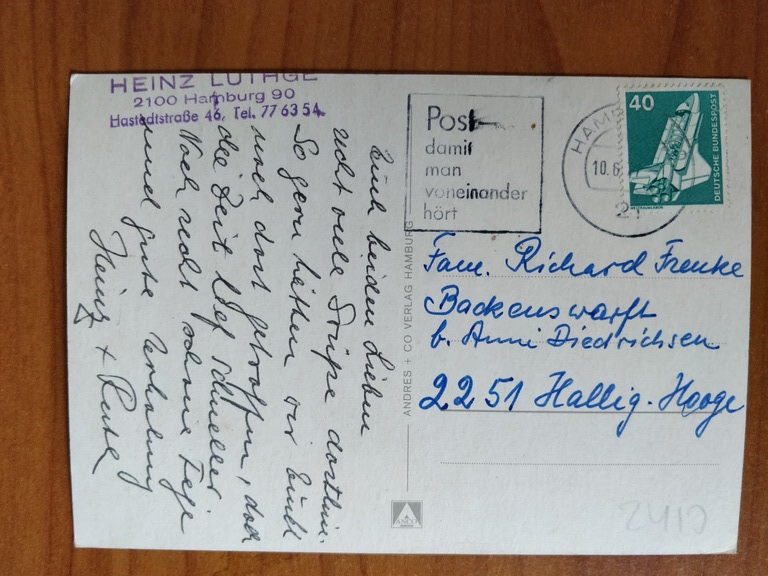 HEINZ LÜTHGE
2100 Hamburg 90
Hastedtstraße 46, Tel. 77 63 54
Euch beiden Lieben
recht viele Grüße dorthin.
So gern hätten wir Euch
noch dort getroffen, doch
die Zeit lief schneller.
Noch recht schöne Tage
und gute Erholung
Heinz + Ruth
ANDRES + CO VERLAG HAMBURG
ANCO
Post
damit
man
voneinander
hört
HAMB
10.6
21
40
DEUTSCHE BUNDESPOST
Fam. Richard Frenke
Backenswarft
b. Anni Diedrichsen
2251 Hallig-Hooge
2410